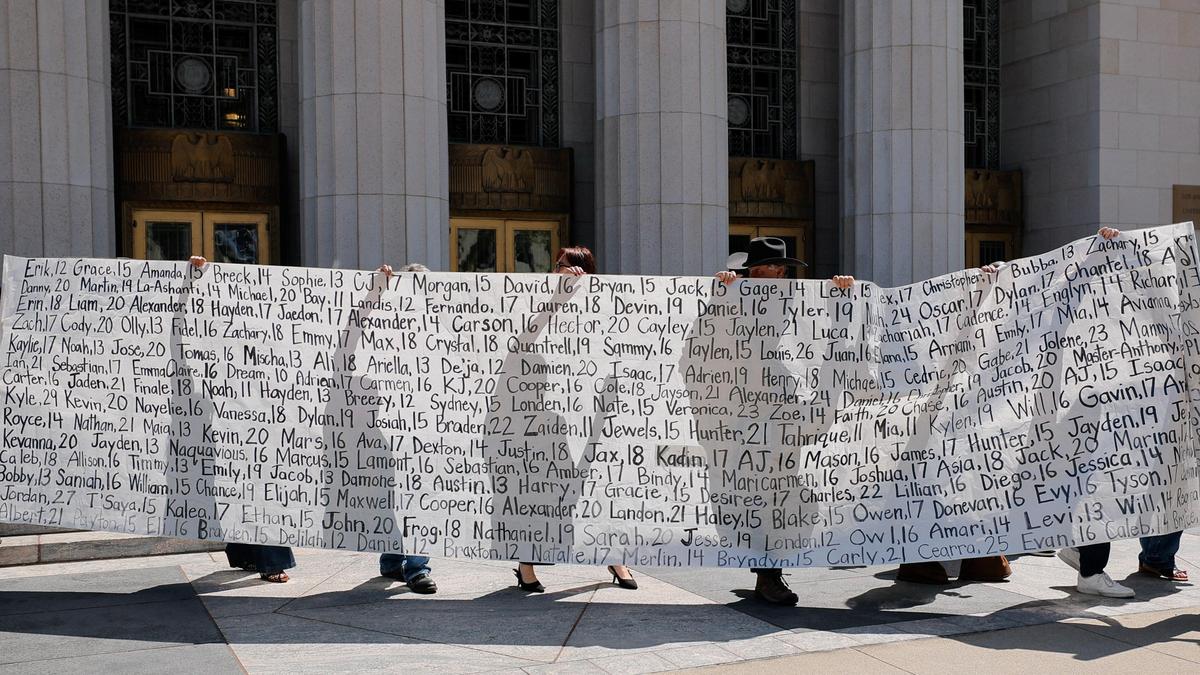 Erik,12 Grace,15 Amanda,15 Breck,14 Sophie,13 17 Morgan,15 David,16 Bryan,15 Jack,15 Gage,14 Lexi,15 Rex,17 Christopher, Bubba,13 Zachary,15
Danny,20 Martin,19 La-Ashanti,14 Michael,20 Bay,11 Landis,12 Fernando,17 Lauren,18 Devin,19 Daniel,16 Tyler,19 24 Oscar,17 Dylan,17 Chantel,18
Erin,18 Liam,20 Alexander,18 Hayden,17 Jaedon,17 Alexander,14 Carson,16 Hector,20 Cayley,15 Jaylen,21 Luca, 17 Cadence, Englyn,14 Richard,
Zach,17 Cody,20 Olly,13 Fidel,16 Zachary,18 Emmy,17 Max,18 Crystal,18 Quantrell,19 Sammy,16 Taylen,15 Louis,26 Juan,16 15 Arriani, Emily,17 Mia,14 Avianna,
Kaylie,17 Noah,13 Jose,20 Tomas,16 Mischa,13 Ali,18 Ariella,13 Deja,12 Damien,20 Isaac,17 Adrien,19 Henry,18 Michael,15 Cedric,20 Gabe,21 Jolene,23 Manny,
Ian,21 Sebastian,17 EmmaClaire,16 Dream,10 Adrien,17 Carmen,16 KJ,20 Cooper,16 Cole,18 Jayson,21 Alexander,24 Jacob,20 Master-Anthony,
Carter,16 Jaden,21 Finale,18 Noah,11 Hayden,13 Breezy,12 Sydney,15 Londen,16 Nate,15 Veronica,23 Zoe,14 Faith,20 Chase,16 Austin,20 AJ,15 Isaac,
Kyle,29 Kevin,20 Nayelie,16 Vanessa,18 Dylan,19 Josiah,15 Braden,22 Zaiden,11 Jewels,15 Hunter,21 Tahrique,11 Mia,11 Kylen,19 Will,16 Gavin,17
Royce,14 Nathan,21 Maia,13 Kevin,20 Mars,16 Ava,17 Dexton,14 Justin,18 Jax,18 Kadin,17 AJ,16 Mason,16 James,17 Hunter,15 Jayden,19
Kevanna,20 Jayden,13 Naquavious,16 Marcus,15 Lamont,16 Sebastian,16 Amber,17 Bindy,14 Maricarmen,16 Joshua,17 Asia,18 Jack,20 Marina,
Caleb,18 Allison,16 Timmy,13 Emily,19 Jacob,13 Damohe,18 Austin,13 Harry, Gracie,15 Desiree,17 Charles,22 Lillian,16 Diego,16 Jessica,14
Bobby,13 Saniah,16 William,15 Chance,19 Elijah,15 Maxwell,17 Cooper,16 Alexander,20 Landon,21 Haley,15 Blake,15 Owen,17 Donevan,16 Evy,16 Tyson,17
Jordan,27 T'Saya,15 Kalea,17 Ethan,15 John,20 Frog,18 Nathaniel,19 Sarah,20 Jesse,19 London,12 Owl,16 Amari,14 Levi,13 Will,14
Albert,21 Payton,15 Eli,16 Brayden,15 Delilah,12 12 Braxton,12 Natalie,17 Merlin,14 Bryndyn,15 Carly,21 Cearra,25 Evan,16 Caleb,14